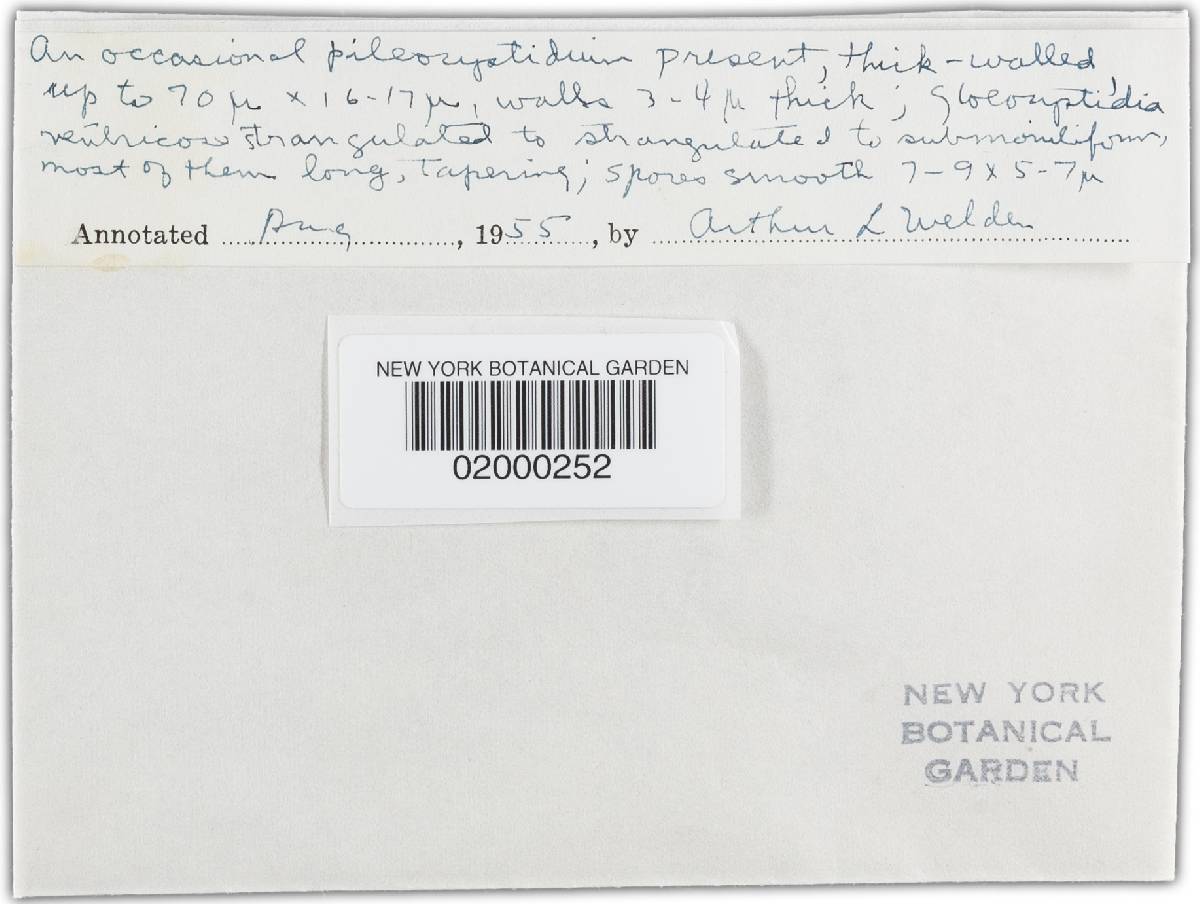 An occasional pileocystidium present, thick-walled,
up to 70 μ x 16-17 μ, walls 3-4 μ thick; gloeocystidia
ventricose strangulated to strangulated to submoniliform,
most of them long, tapering; spores smooth 7-9 x 5-7 μ
Annotated Aug, 1955, by Arthur L Welden
NEW YORK BOTANICAL GARDEN
02000252
NEW YORK
BOTANICAL
GARDEN